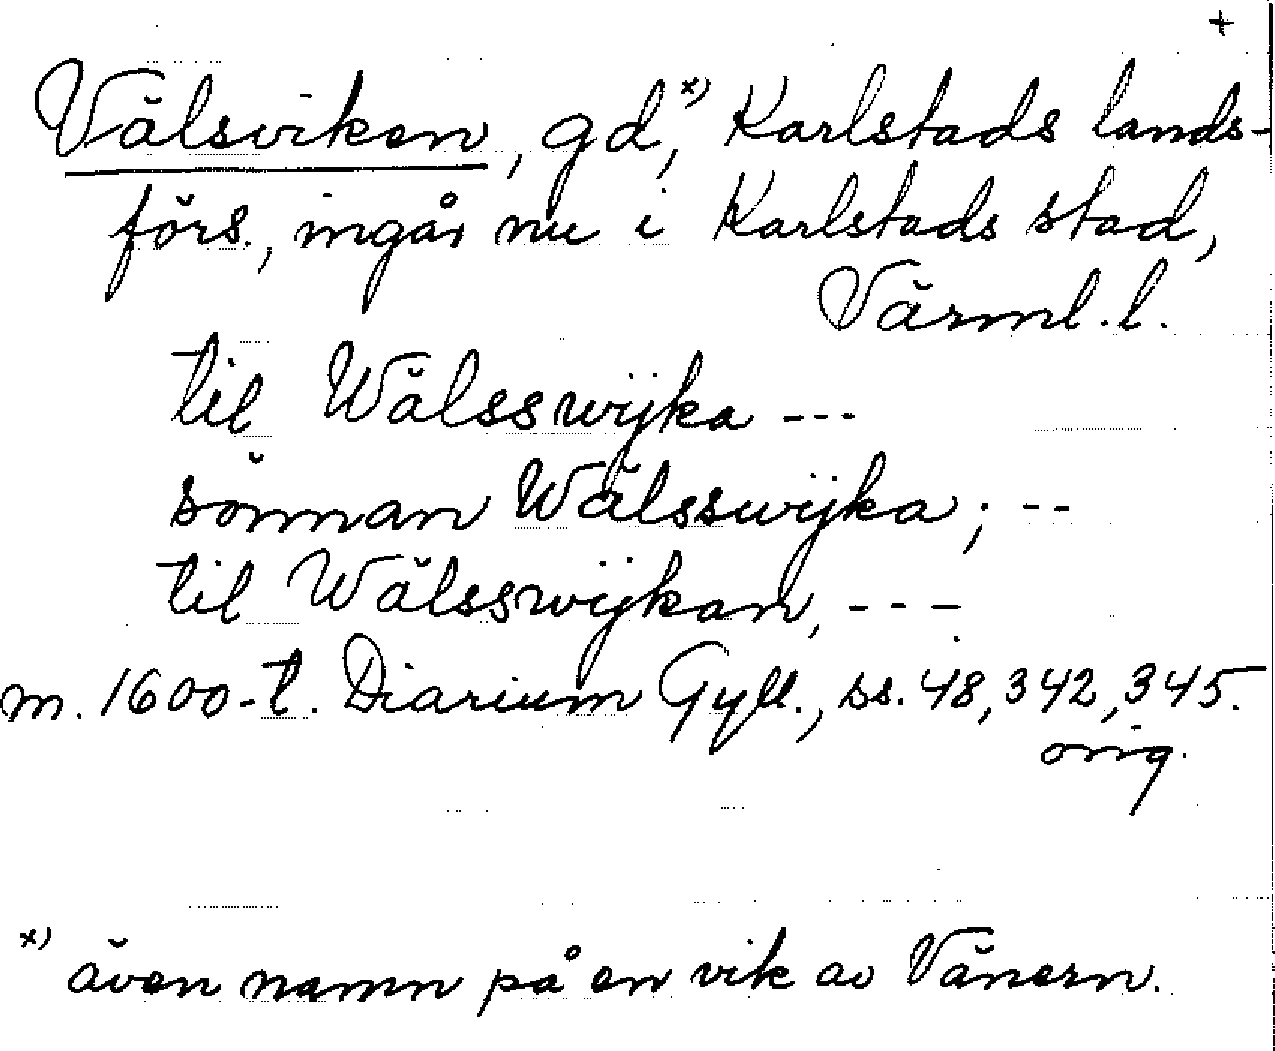 +
Välsviken, gd,x) Karlstads lands-
förs., ingår nu i Karlstads stad,
Värml. l.
til Wälsswijka ---
sönnan Wälsswijka; --
til Wälsswijkan, ---
m. 1600-t. Diarium Gyll., ss. 48, 342, 345.
orig.
x) även namn på en vik av Vänern.